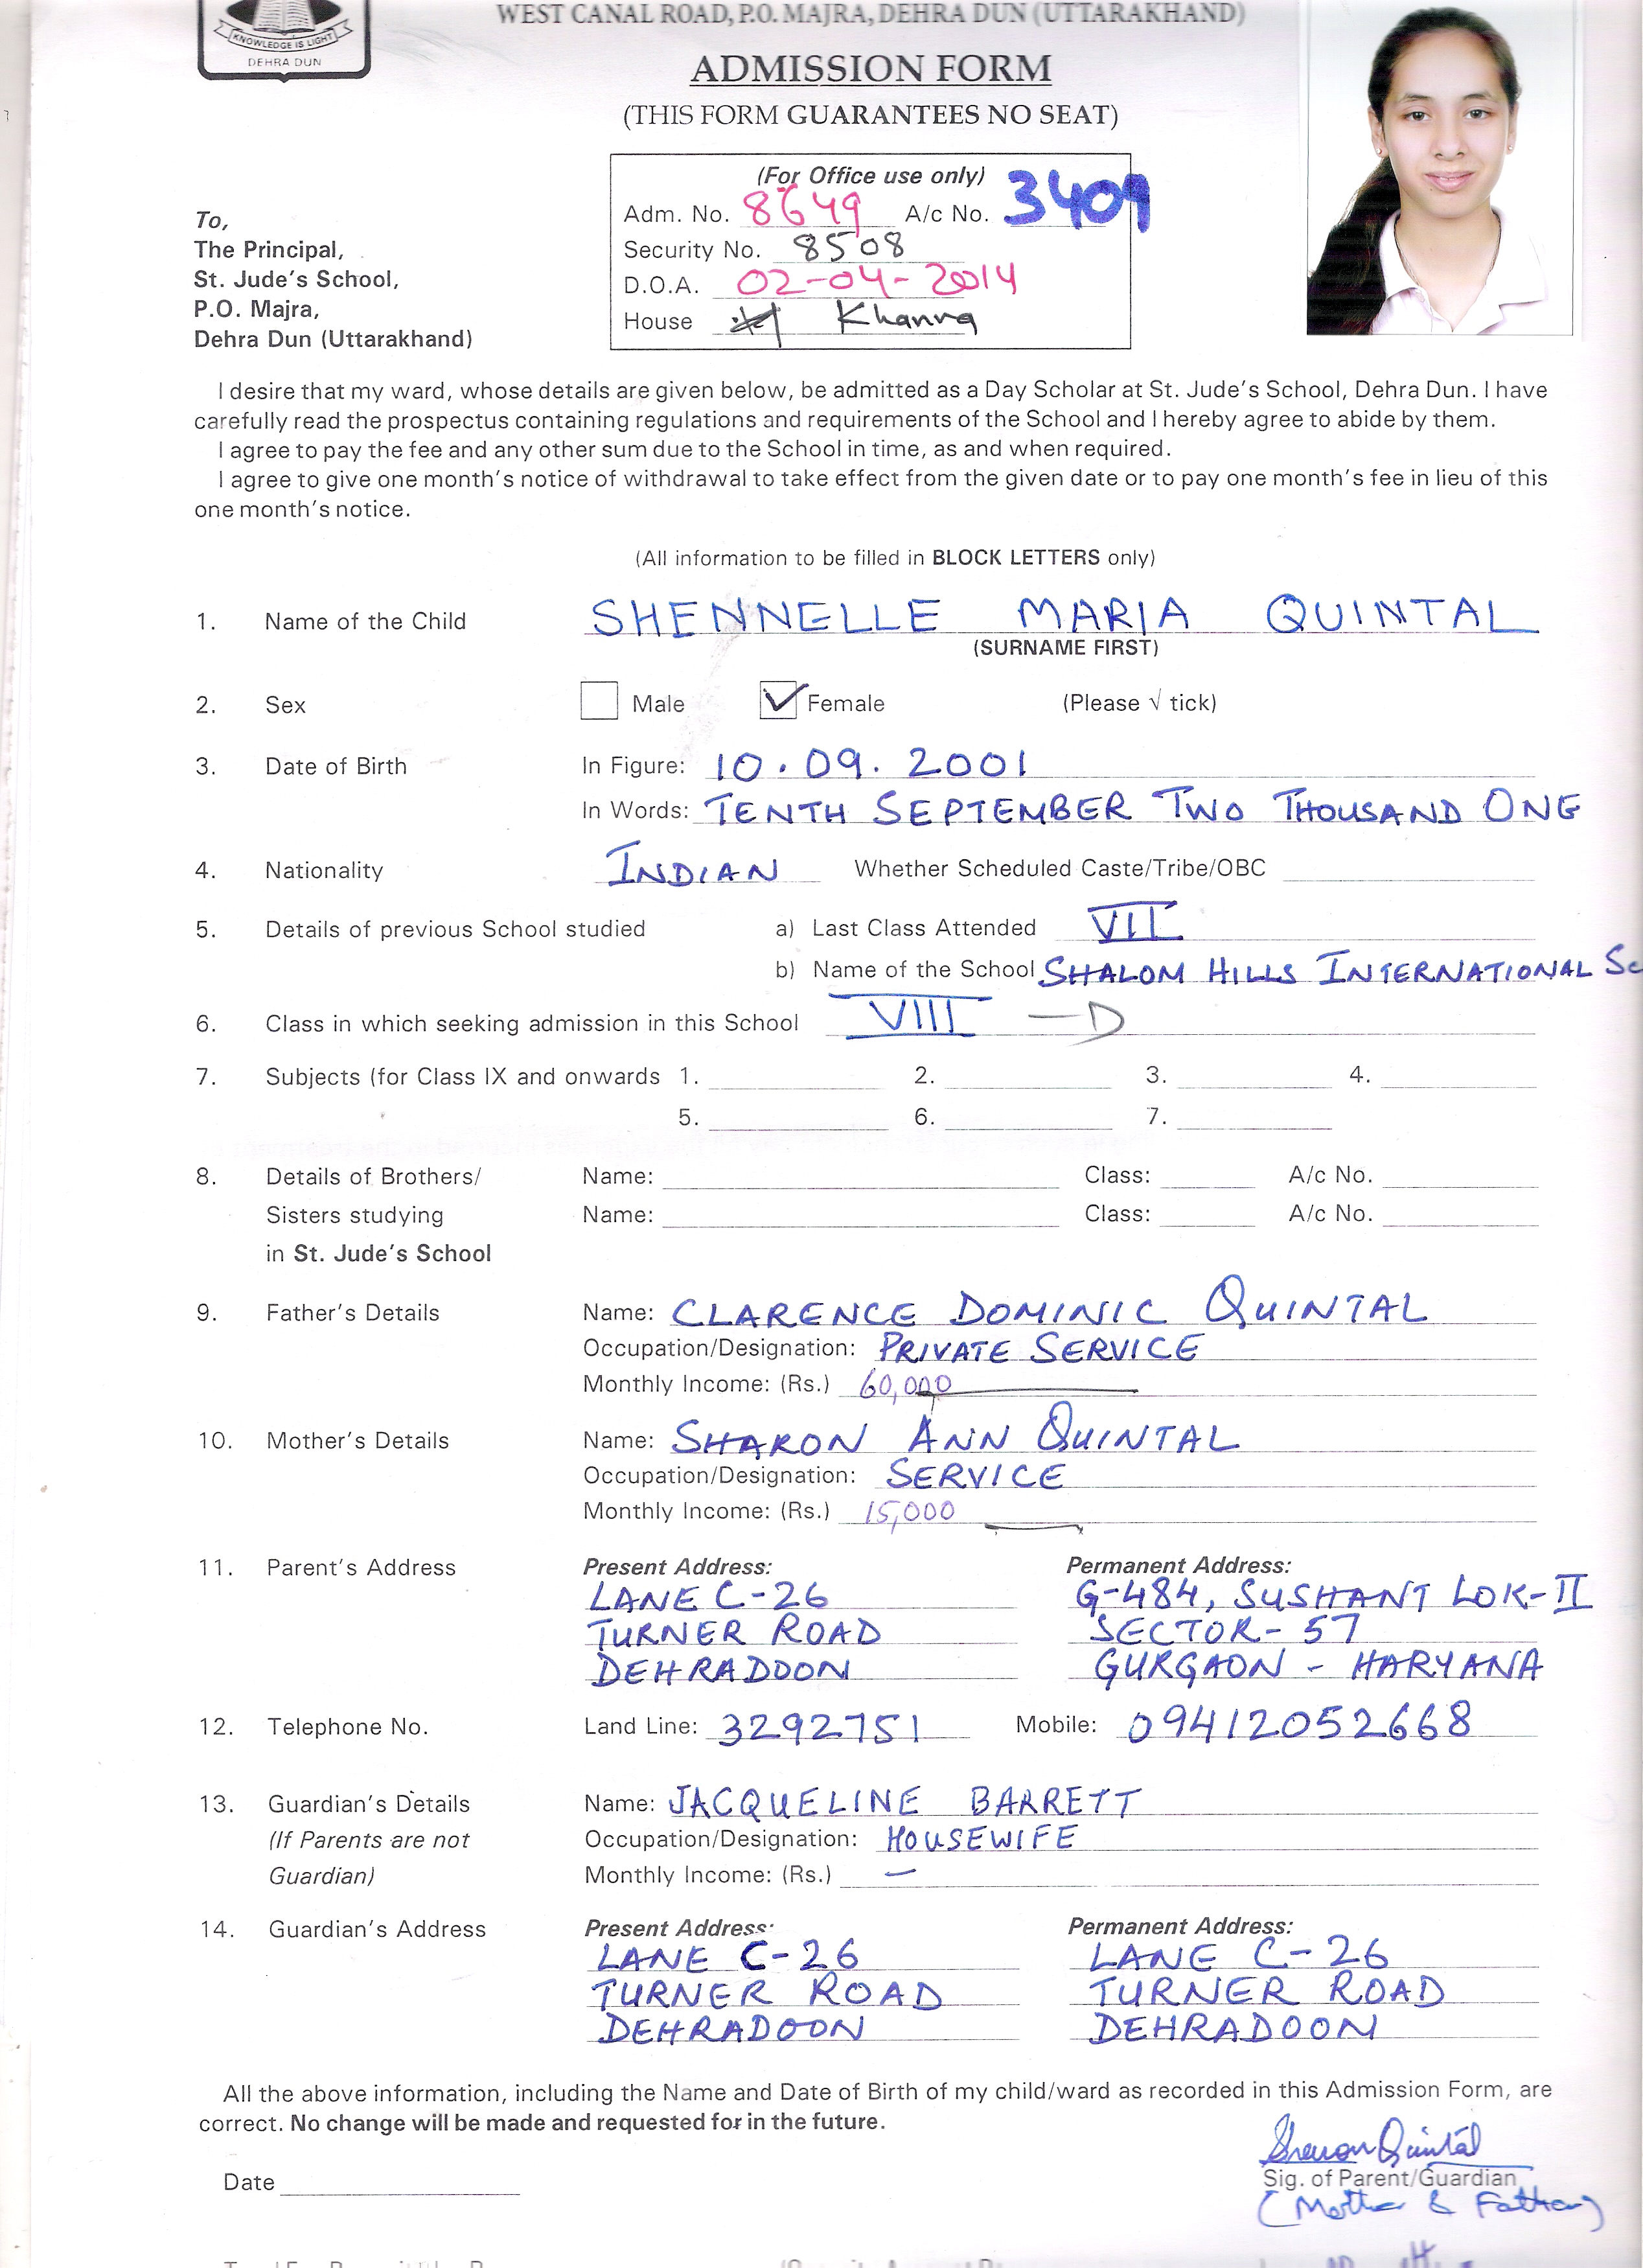 WEST CANAL ROAD, P.O. MAJRA, DEHRA DUN (UTTARAKHAND)
KNOWLEDGE IS LIGHT
DEHRA DUN
ADMISSION FORM
(THIS FORM GUARANTEES NO SEAT)
(For Office use only)
Adm. No. 8649 A/c No. 3409
Security No. 8508
D.O.A. 02-04-2014
House Khanna
To,
The Principal,
St. Jude's School,
P.O. Majra,
Dehra Dun (Uttarakhand)
I desire that my ward, whose details are given below, be admitted as a Day Scholar at St. Jude's School, Dehra Dun. I have
carefully read the prospectus containing regulations and requirements of the School and I hereby agree to abide by them.
I agree to pay the fee and any other sum due to the School in time, as and when required.
I agree to give one month's notice of withdrawal to take effect from the given date or to pay one month's fee in lieu of this
one month's notice.
(All information to be filled in BLOCK LETTERS only)
1. Name of the Child SHENNELLE MARIA QUINTAL
(SURNAME FIRST)
2. Sex Male ✓ Female (Please √ tick)
3. Date of Birth In Figure: 10.09.2001
In Words: TENTH SEPTEMBER TWO THOUSAND ONE
4. Nationality INDIAN Whether Scheduled Caste/Tribe/OBC
5. Details of previous School studied a) Last Class Attended VII
b) Name of the School SHALOM HILLS INTERNATIONAL Sc
6. Class in which seeking admission in this School VIII - D
7. Subjects (for Class IX and onwards 1. 2. 3. 4.
5. 6. 7.
8. Details of Brothers/ Name: Class: A/c No.
Sisters studying Name: Class: A/c No.
in St. Jude's School
9. Father's Details Name: CLARENCE DOMINIC QUINTAL
Occupation/Designation: PRIVATE SERVICE
Monthly Income: (Rs.) 60,000
10. Mother's Details Name: SHARON ANN QUINTAL
Occupation/Designation: SERVICE
Monthly Income: (Rs.) 15,000
11. Parent's Address Present Address: Permanent Address:
LANE C-26 G-484, SUSHANT LOK-II
TURNER ROAD SECTOR-57
DEHRADOON GURGAON - HARYANA
12. Telephone No. Land Line: 3292751 Mobile: 09412052668
13. Guardian's Details Name: JACQUELINE BARRETT
(If Parents are not Occupation/Designation: HOUSEWIFE
Guardian) Monthly Income: (Rs.) —
14. Guardian's Address Present Address: Permanent Address:
LANE C-26 LANE C-26
TURNER ROAD TURNER ROAD
DEHRADOON DEHRADOON
All the above information, including the Name and Date of Birth of my child/ward as recorded in this Admission Form, are
correct. No change will be made and requested for in the future.
Sharon Quintal
Date Sig. of Parent/Guardian
(Mother & Father)